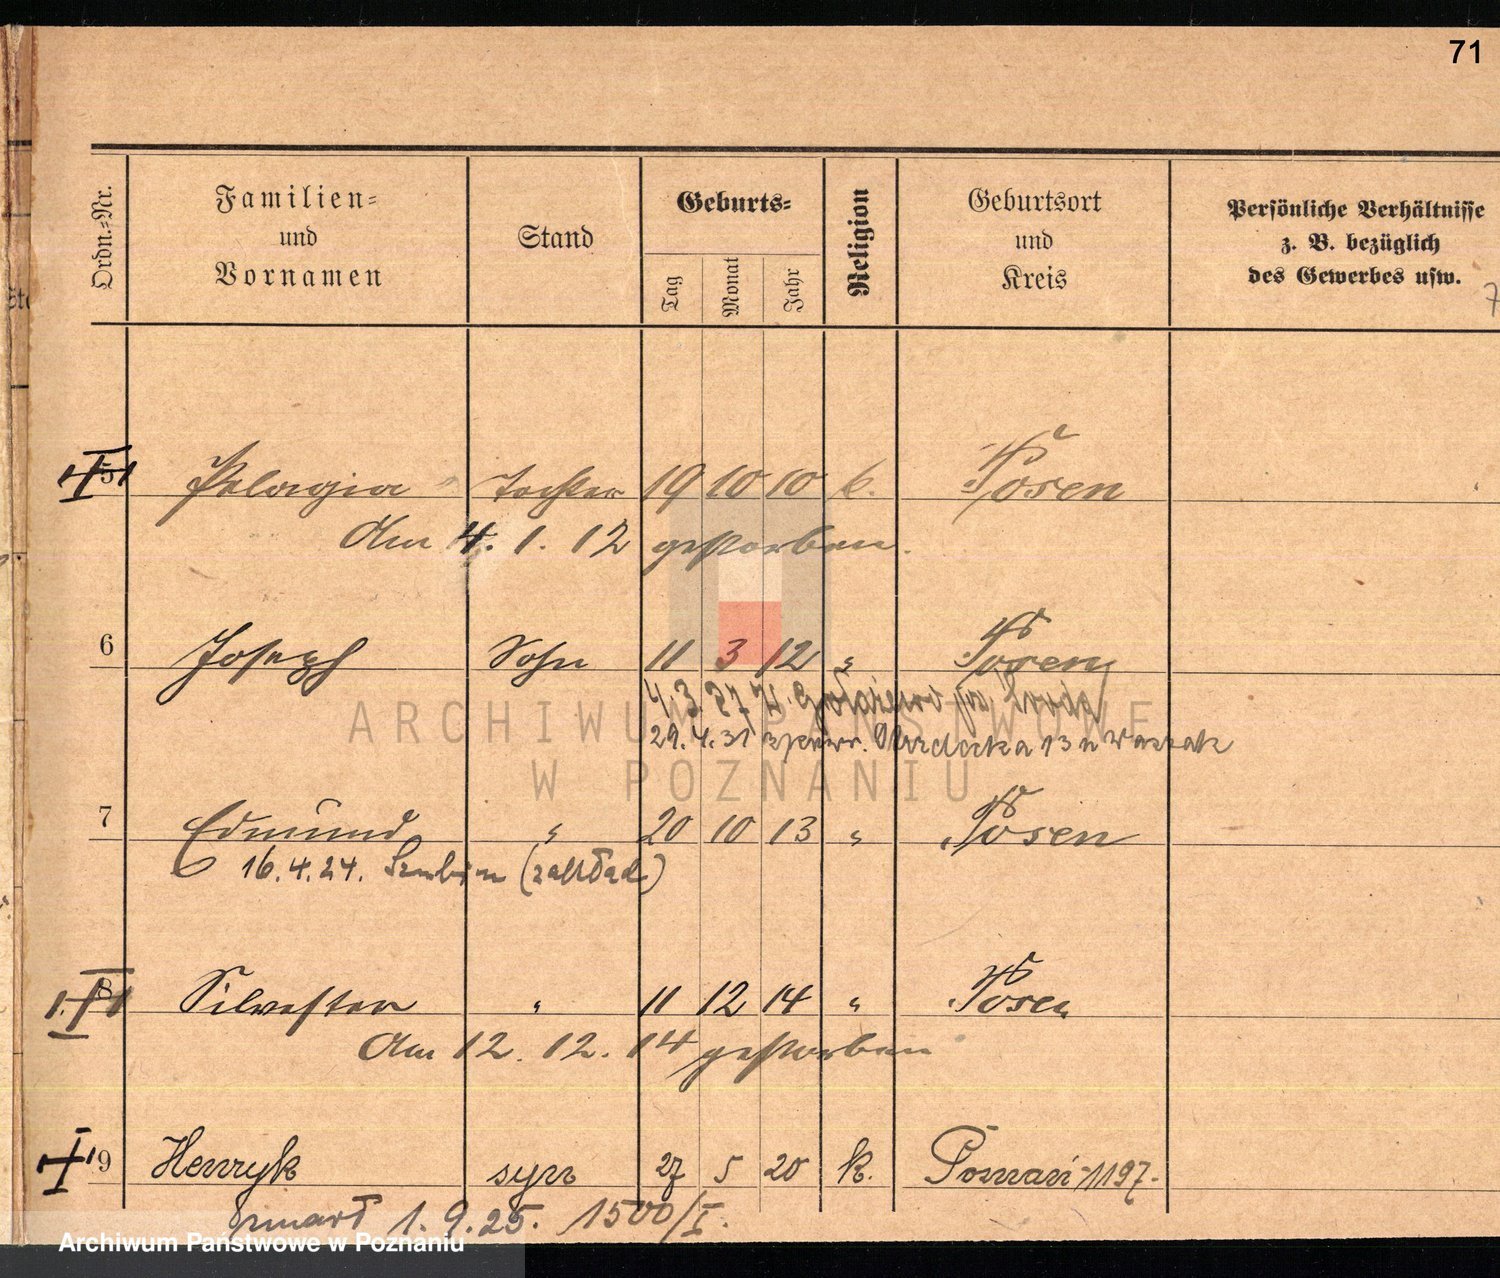 71
Ordn.-Nr.
Familien-
und
Vornamen
Stand
Geburts-
Tag
Monat
Jahr
Religion
Geburtsort
und
Kreis
Persönliche Verhältnisse
z. B. bezüglich
des Gewerbes usw.
5 Pelagia Tochter 19 10 10 k. Posen
Am 4. 1. 12 gestorben.
6 Joseph Sohn 11 3 12 " Posen
4.3.27
29.4.31 13
7 Edmund " 20 10 13 " Posen
16.4.24. Szubin (zakład)
8 Silvester " 11 12 14 " Posen
Am 12. 12. 14 gestorben
9 Henryk syn 27 5 20 k. Poznań 1197.
zmarł 1. 9. 25. 1500/I.
ARCHIWUM PAŃSTWOWE
W POZNANIU
Archiwum Państwowe w Poznaniu